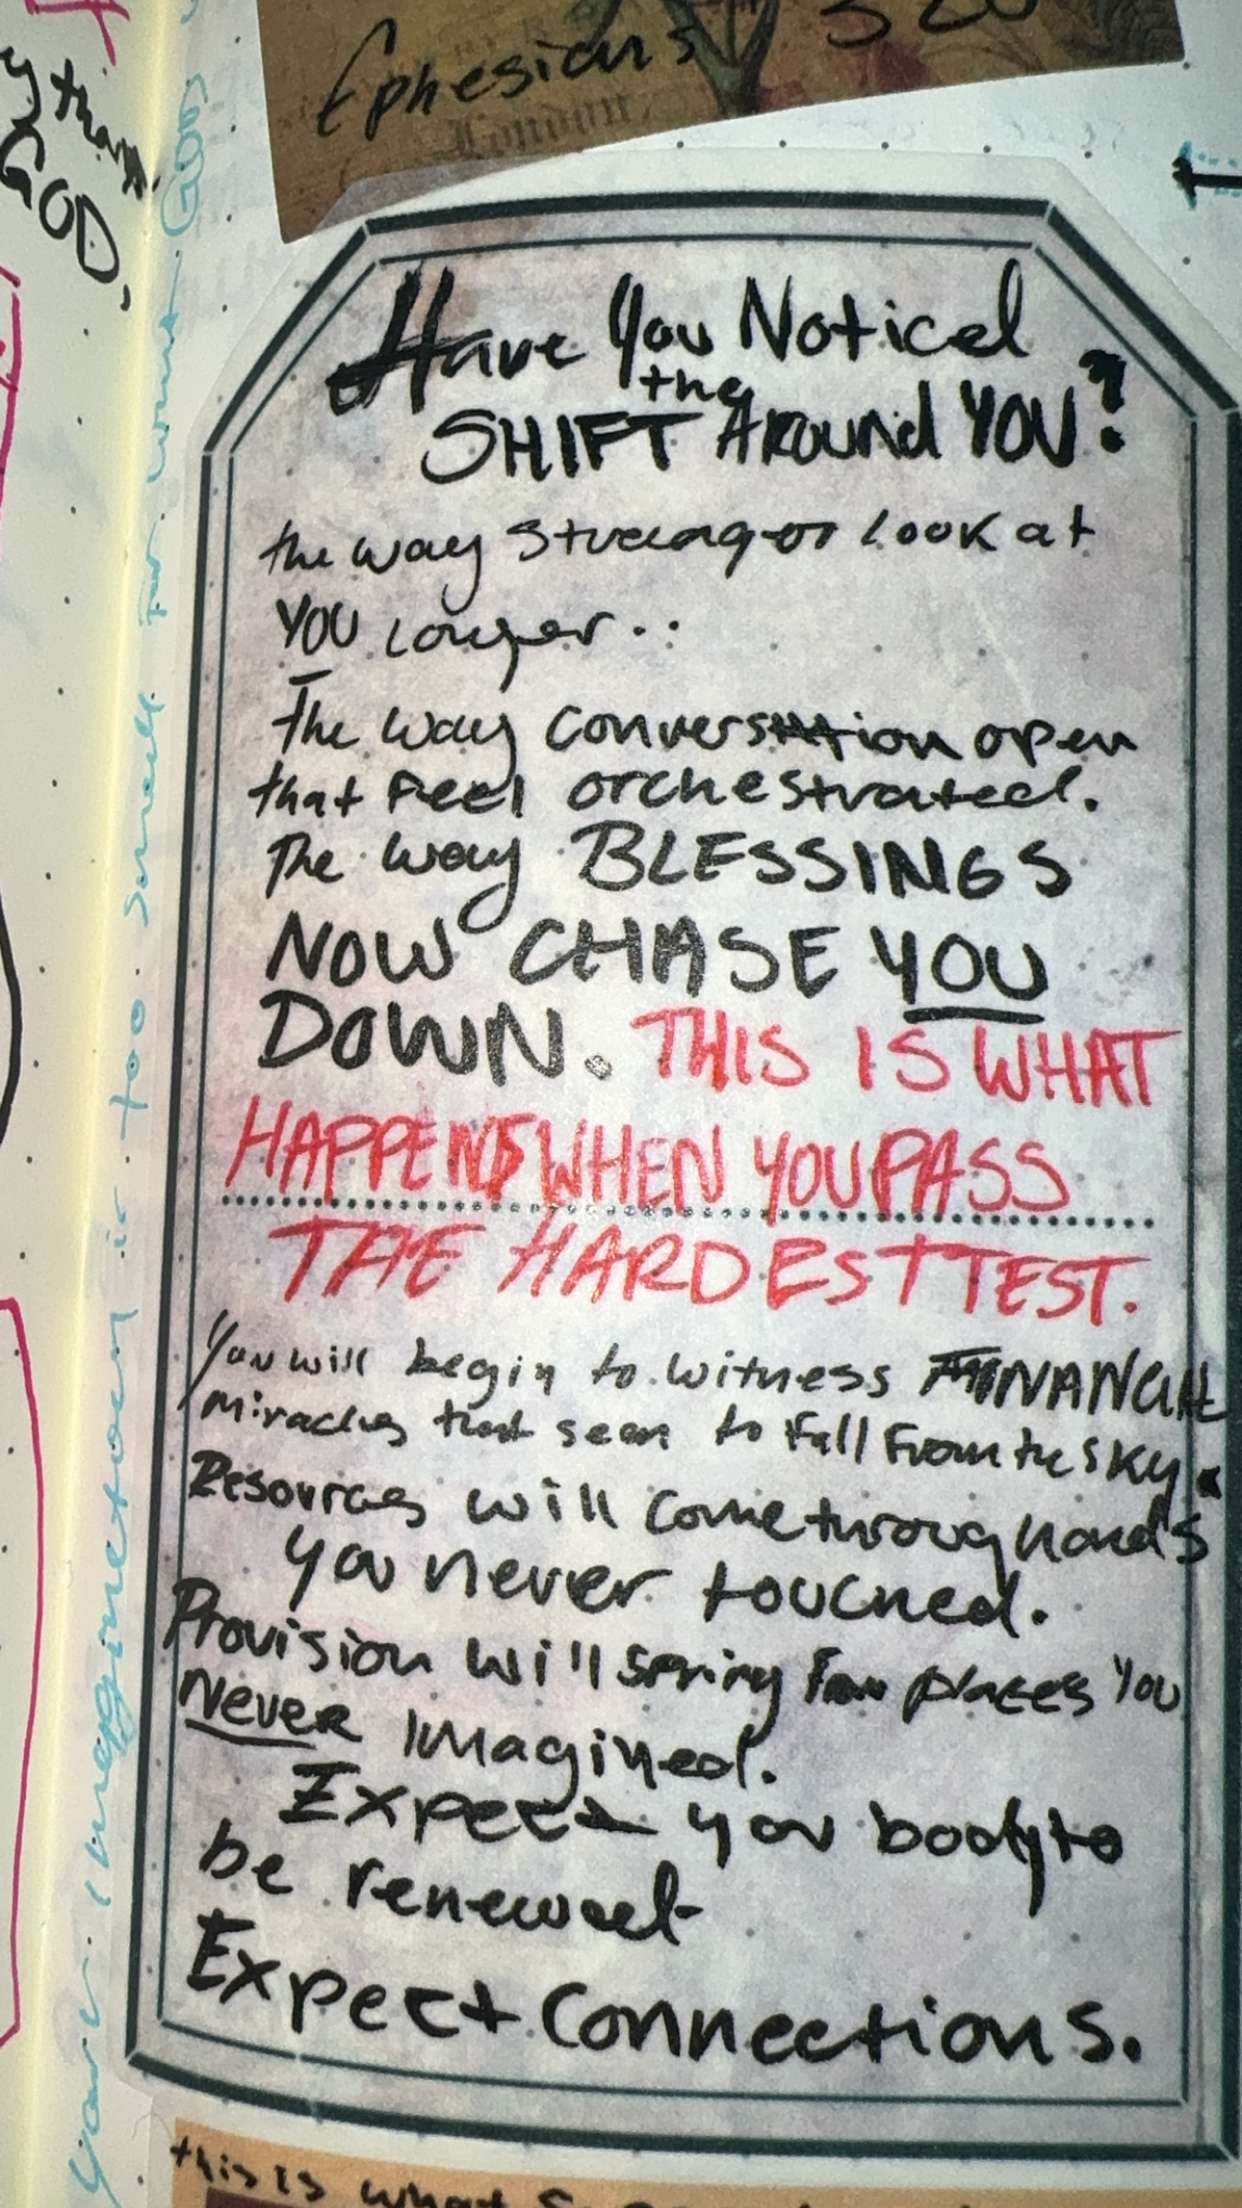 Ephesians 320
London
y than
GOD.
Have You Noticed
the
SHIFT Around YOU?
the way Straangor look at
YOU Longer..
The way conversation open
that feel orchestrated.
The way BLESSINGS
NOW CHASE YOU
DOWN. THIS IS WHAT
HAPPENS WHEN YOU PASS
THE HARDEST TEST.
You will begin to witness FINANCIAL
miracles that seem to fall From the sky.
Resources will come through hands
you never touched.
Provision will spring From places You
Never Imagined.
Expect you body to
be renewed
Expect Connections.
this is what
your imaginetoon is too small for what God